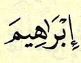 إِبْرَاهِيمَ